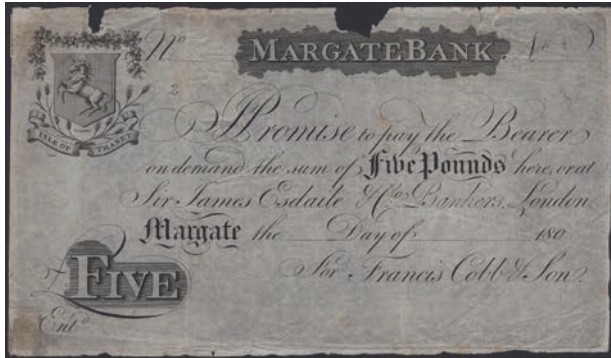 No MARGATE BANK. No
ISLE OF THANET
2
I Promise to pay the Bearer
on demand the sum of Five Pounds here, or at
Sir James Esdaile & Co. Bankers, London
Margate the Day of 180
£ FIVE
For Francis Cobb & Son.
Entd.